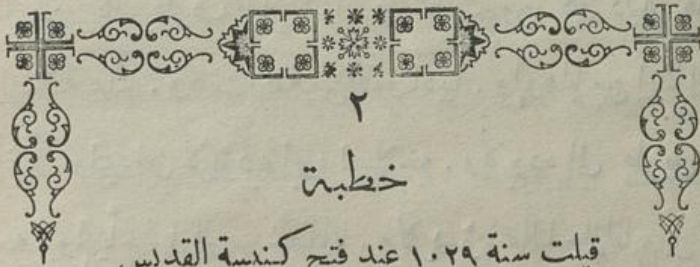 ٢
خطبة
قيلت سنة ١٠٢٩ عند فتح كنيسة القديس